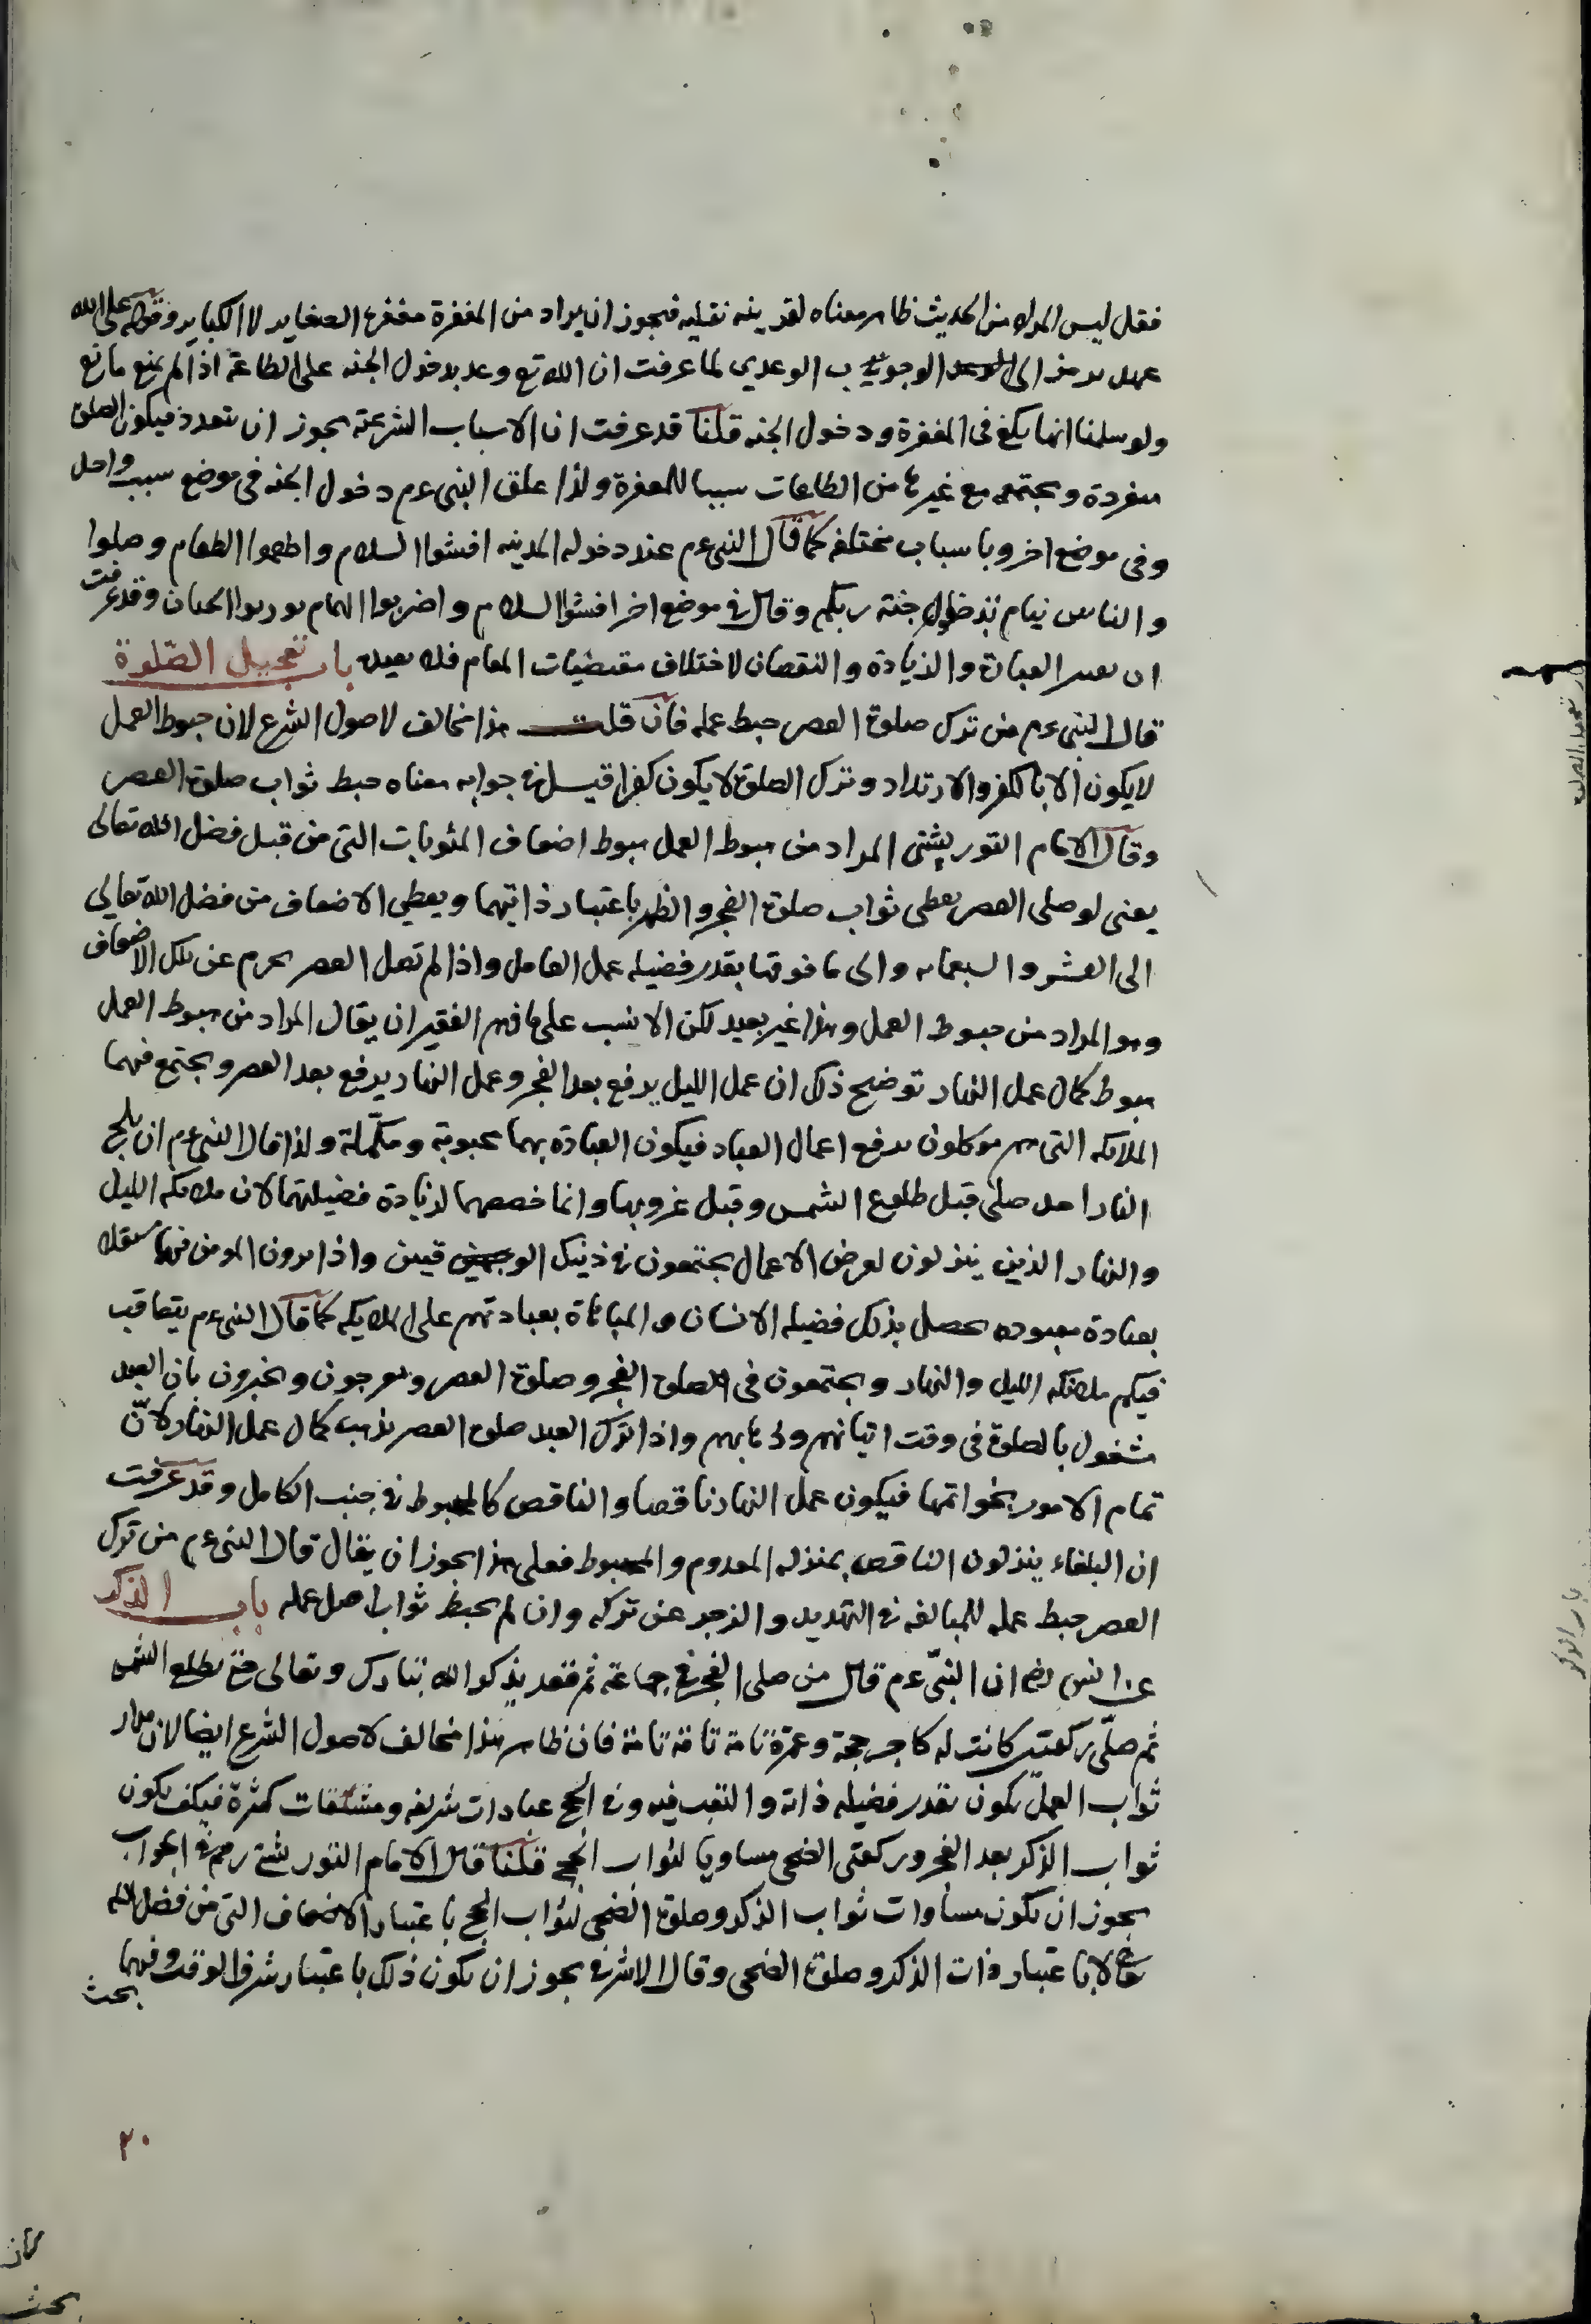 فقل ليس المراد من الحديث ظاهر معناه لقرينه نقليه فيجوز ان يراد من المغفرة مغفرة الصغاير لا الكباير وقوله على الله
عهد الوجوب الوعدي لما عرفت ان الله تع وعد بدخول الجنه على الطاعة اذا لم يمنع مانع
ولو سلمنا انها يكفي في المغفرة ودخول الجنه قلنا قد عرفت ان الاسباب الشرعية يجوز ان تتعدد فيكون الصلوة
منفردة ويجتمع مع غيرها من الطاعات سببا للمغفرة ولذا علق النبى عم دخول الجنه في موضع سبب واحد
وفي موضع اخر وباسباب مختلفه كما قال النبى عم عند دخوله المدينه افشوا السلام واطعموا الطعام وصلوا
والناس نيام تدخلوا جنة ربكم وقال في موضع اخر افشوا السلام واضربوا الهام تورثوا الجنان وقد عرفت
ان العبارة والزيادة والنقصان لاختلاف مقتضيات المقام فلا نعيده باب تعجيل الصلوة
قال النبى عم من ترك صلوة العصر حبط عمله فان قلت هذا مخالف لاصول الشرع لان حبوط العمل
لا يكون الا بالكفر والارتداد وترك الصلوة لا يكون كفرا قيل في جوابه معناه حبط ثواب صلوة العصر
وقال الامام التوربشتى المراد من حبوط العمل حبوط اضعاف المثوبات التى من قبل فضل الله تعالى
يعنى لو صلى العصر يعطى ثواب صلوة الفجر والظهر باعتبار ذاتيهما ويعطى الاضعاف من فضل الله تعالى
الى العشر والسبعمايه والى ما فوقها بقدر فضيله عمل العامل واذا لم تصل العصر يحرم عن تلك الاضعاف
وهو المراد من حبوط العمل وهذا غير بعيد لكن الانسب على ما فهم الفقير ان يقال المراد من حبوط العمل
حبوط كمال عمل النهار توضيح ذلك ان عمل الليل يرفع بعد الفجر وعمل النهار يرفع بعد العصر ويجتمع فيهما
الملائكه التى هم موكلون برفع اعمال العباد فيكون العبادة بهما محبوبة ومكملة ولذا قال النبى عم ان يلج
النار احد صلى قبل طلوع الشمس وقبل غروبها وانما خصصهما لزيادة فضيلتهما لان ملائكه الليل
والنهار الذين ينزلون لعرض الاعمال يجتمعون في ذينك الوقتين واذا يرون المومن فيهما
بعبادة معبوده يحصل بذلك فضيله الانسان والمباهاة بعبادتهم على الملايكه كما قال النبى عم يتعاقب
فيكم ملائكه الليل والنهار ويجتمعون في الصلوة الفجر وصلوة العصر ويعرجون ويخبرون بان العبد
مشغول بالصلوة في وقت اتيانهم وذهابهم واذا ترك العبد صلوة العصر يذهب كمال عمل النهار لانّ
تمام الامور بخواتمها فيكون عمل النهار ناقصا والناقص كالحبوط في جنب الكامل وقد عرفت
ان البلغاء ينزلون الناقص بمنزله المعدوم والمحبوط فعلى هذا يجوز ان يقال قال النبى عم من ترك
العصر حبط عمله للمبالغه في التهديد والزجر عن تركه وان لم يحبط ثواب اصل عمله باب الذكر
عن انس رضه ان النبّى عم قال من صلى الفجر في جماعة ثم قعد يذكر الله تبارك وتعالى حتى تطلع الشمس
ثم صلّى ركعتين كانت له كاجر حجة وعمرة تامة تامة تامة فان ظاهر هذا مخالف لاصول الشرع ايضا لان مدار
ثواب العمل يكون بقدر فضيله ذاته والتعب فيه وفي الحج عبادات شريفه ومشقات كثيرة فيكف يكون
ثواب الذكر بعد الفجر وركعتى الضحى مساويا لثواب الحج قلنا قال الامام التوربشتى رحمه في الجواب
يجوز ان يكون مساوات ثواب الذكر وصلوة الضحى لثواب الحج باعتبار الاضعاف التى من فضل الله
تعالى لا باعتبار ذات الذكر وصلوة الضحى وقال الاشرف يجوز ان يكون ذلك باعتبار شرف الوقت وفيهما
بحث
٢٠
باب الذكر
بحث